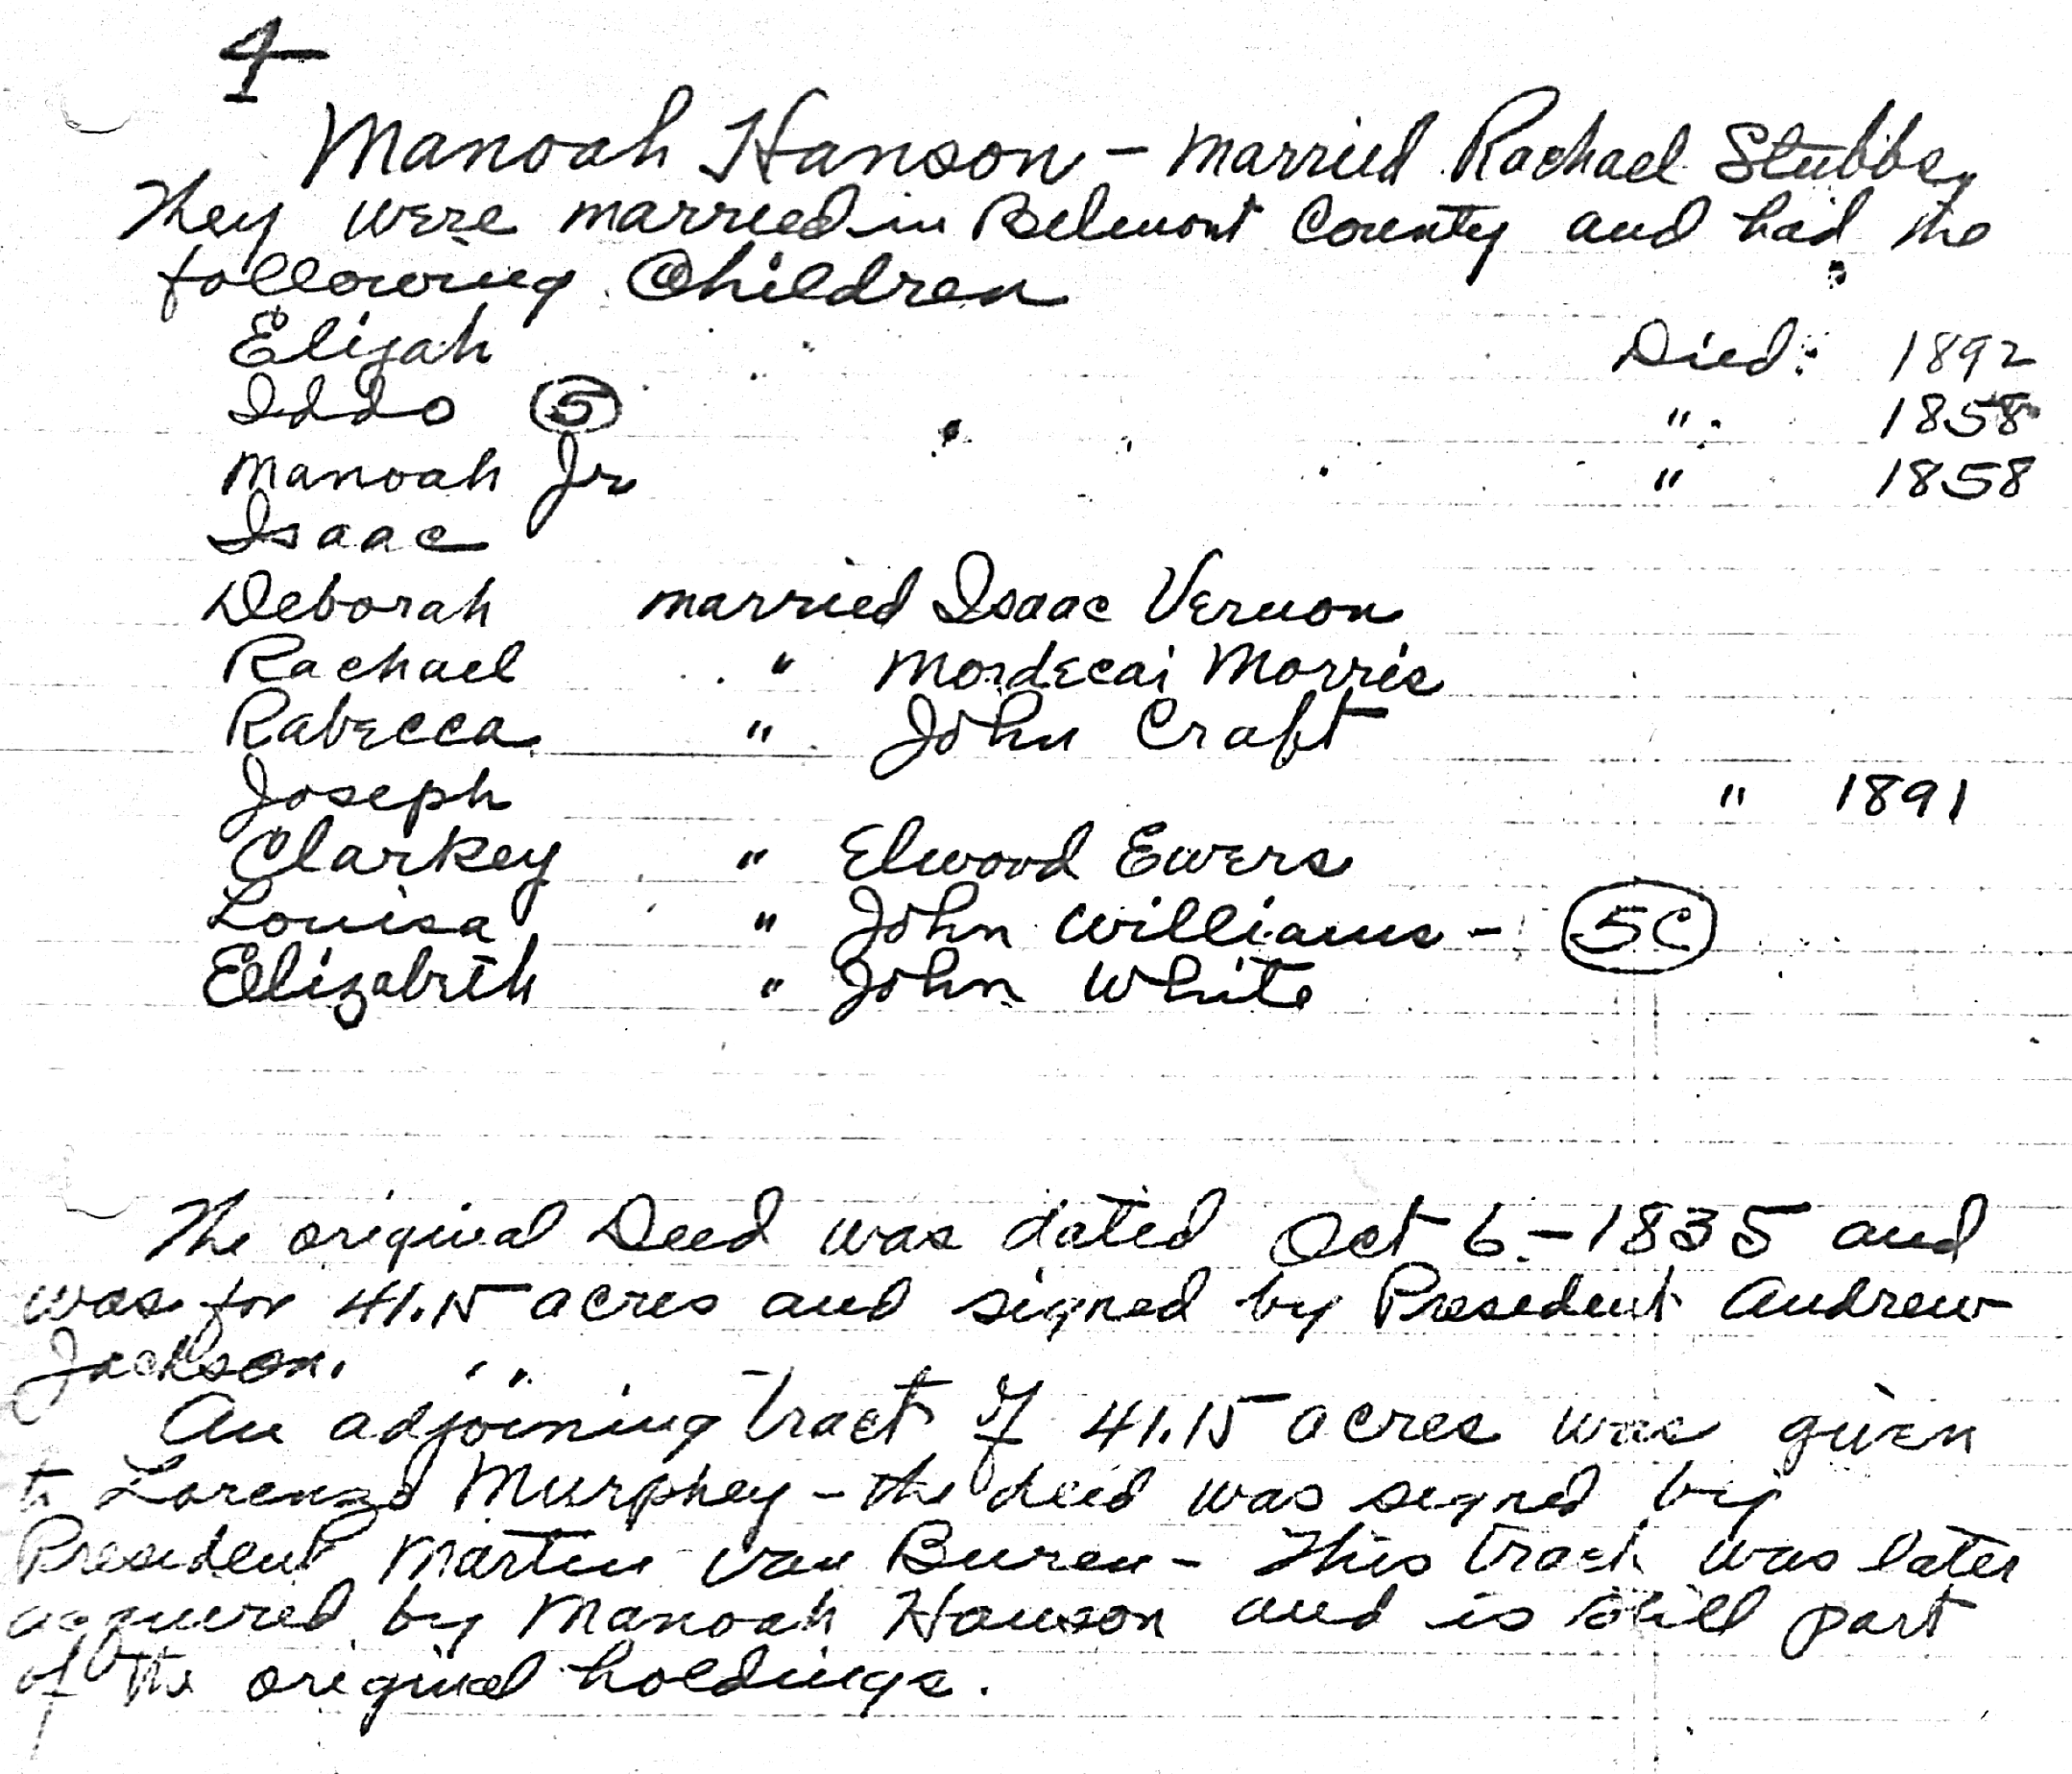 4
Manoah Hanson - Married Rachael Stubbs,
They were married in Belmont County and had the
following Children
Elijah Died: 1892
Iddo ⑤ " 1858
Manoah Jr " 1858
Isaac
Deborah married Isaac Vernon
Rachael " Mordecai Morris
Rabecca " John Craft
Joseph " 1891
Clarkey " Elwood Ewers
Louisa " John Williams - 5C
Elizabeth " John White
The original Deed was dated Oct 6 - 1835 and
was for 41.15 acres and signed by President Andrew
Jackson.
An adjoining tract of 41.15 acres was given
to Lorenzo Murphey - the deed was signed by
President Martin Van Buren - This tract was later
acquired by Manoah Hanson and is still part
of the original holdings.